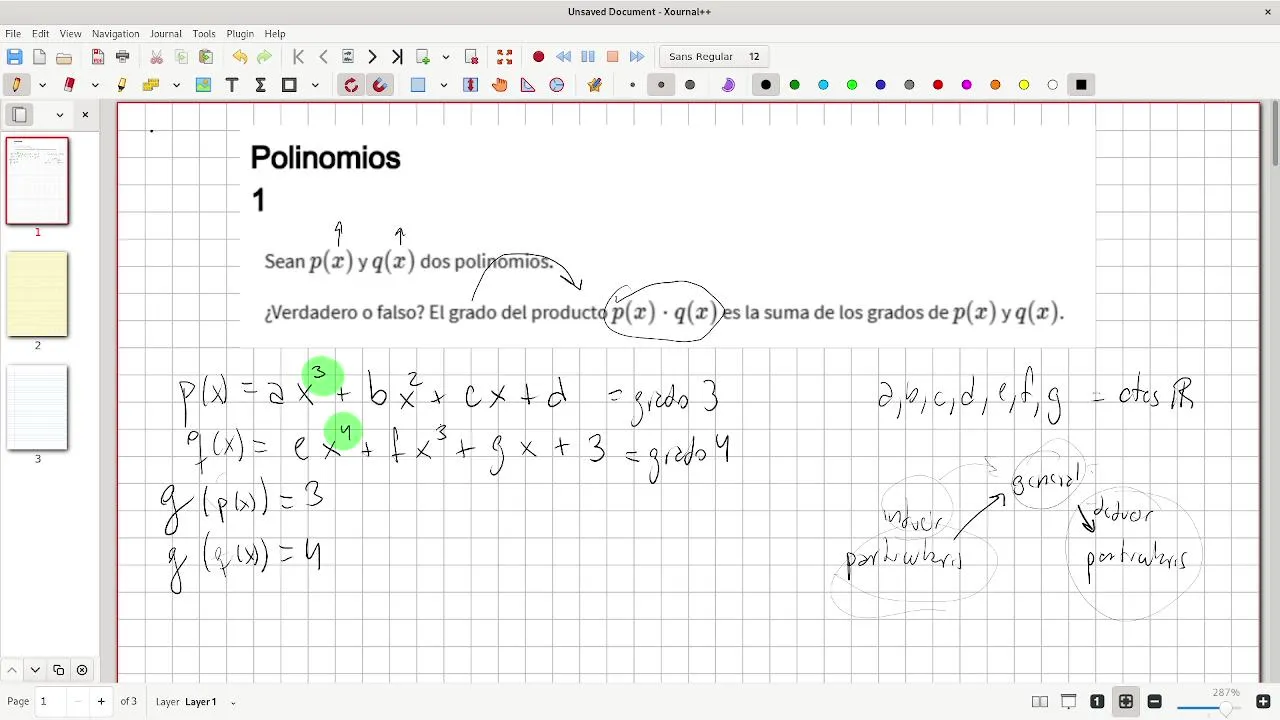 Unsaved Document - Xournal++
File Edit View Navigation Journal Tools Plugin Help
Sans Regular 12
Polinomios
1
Sean p(x) y q(x) dos polinomios.
¿Verdadero o falso? El grado del producto p(x) · q(x) es la suma de los grados de p(x) y q(x).
p(x) = ax³ + bx² + cx + d = grado 3
a,b,c,d,e,f,g = ctes ℝ
q(x) = ex⁴ + fx³ + gx + 3 = grado 4
g(p(x)) = 3
g(q(x)) = 4
general
inducir
deducir
particulares
particulares
1
2
3
Page 1 of 3 Layer Layer 1
287%